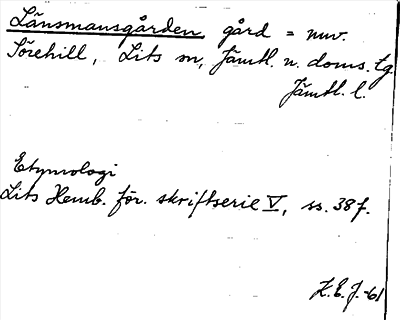 Länsmansgården gård = nuv.
Sörehill, Lits sn, Jämtl. n. doms. tg.
Jämtl. l.
Etymologi
Lits Hemb. för. skriftserie V, ss. 38 f.
K.E.J.-61